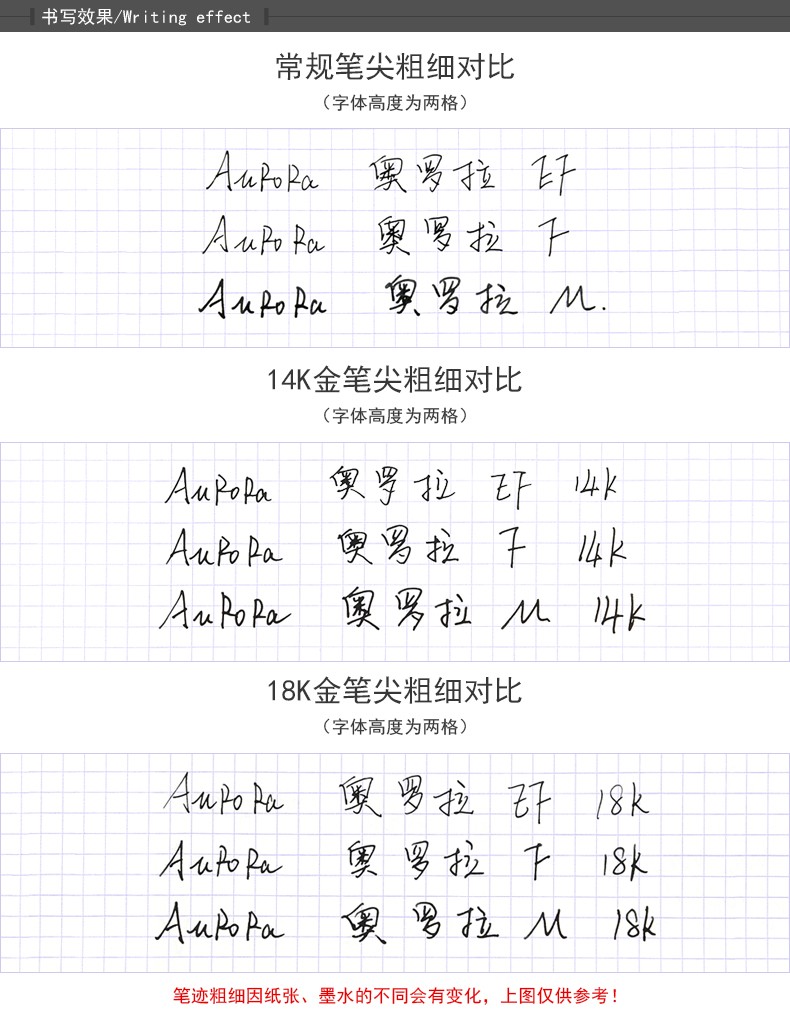 书写效果/Writing effect
常规笔尖粗细对比
（字体高度为两格）
AuRoRa 奥罗拉 EF
AuRoRa 奥罗拉 F
AuRoRa 奥罗拉 M.
14K金笔尖粗细对比
（字体高度为两格）
AuRoRa 奥罗拉 EF 14K
AuRoRa 奥罗拉 F 14K
AuRoRa 奥罗拉 M 14K
18K金笔尖粗细对比
（字体高度为两格）
AuRoRa 奥罗拉 EF 18K
AuRoRa 奥罗拉 F 18K
AuRoRa 奥罗拉 M 18K
笔迹粗细因纸张、墨水的不同会有变化，上图仅供参考！